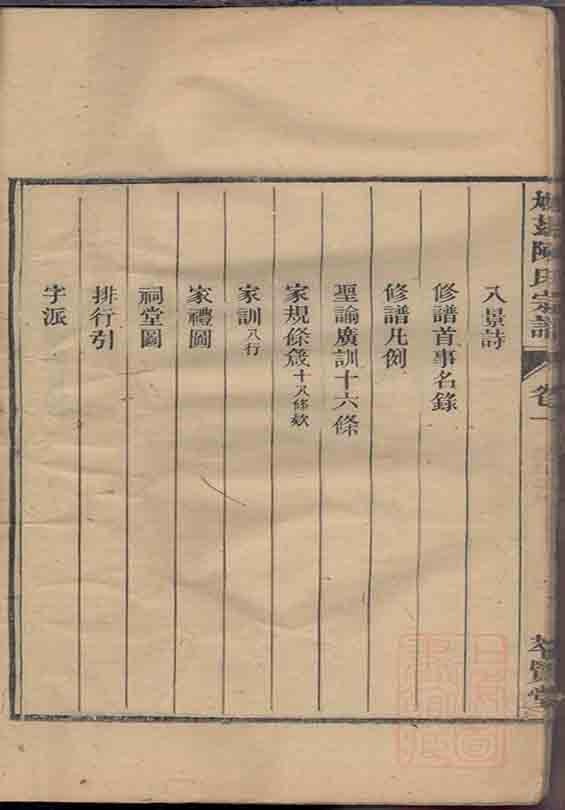 陳氏宗譜
卷一
八景詩
修譜首事名錄
修譜凡例
聖諭廣訓十六條
家規條箴十八條欵
家訓八行
家禮圖
祠堂圖
排行引
字派